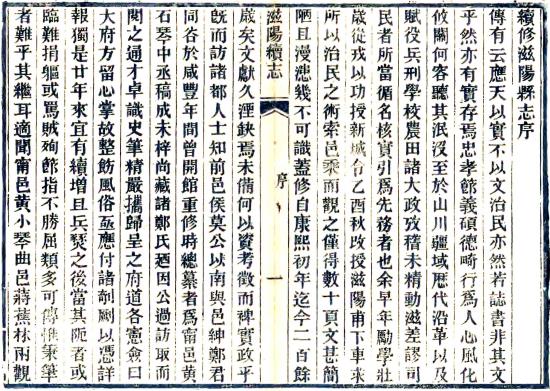 續修滋陽縣志序
傳有云應天以實不以文治民亦然若誌書非其文
乎然亦有實存焉忠孝節義碩德畸行爲人心風化
攸關何容聽其泯沒至於山川疆域歷代沿革以及
賦役兵刑學校農田諸大政攷稽未精動滋差謬司
民者所當循名核實引爲先務者也余早年勵學壯
歲從戎以功授新城令乙酉秋攺授滋陽甫下車求
所以治民之術索邑乘而觀之僅得數十頁文甚簡
陋且漫漶幾不可識蓋修自康熙初年迄今二百餘
滋陽續志
序
一
歲矣文獻久湮缺焉未備何以資考徵而裨實政乎
既而訪諸都人士知前邑侯莫公以南與邑紳鄭君
同谷於咸豐年間曾開館重修時總纂者爲甯邑黃
石琴中丞稿成未梓尚藏諸鄭氏廼因公過訪取而
閱之通才卓識史筆精嚴攜歸呈之府道各憲僉曰
大府方留心掌故整飭風俗亟應付諸剞劂以憑詳
報獨是廿年來宜有續增且兵燹之後當其阨者或
臨難捐軀或罵賊殉節指不勝屈類多可傳惟秉筆
者難乎其繼耳適聞甯邑黃小琴曲邑蔣蕉林兩觀